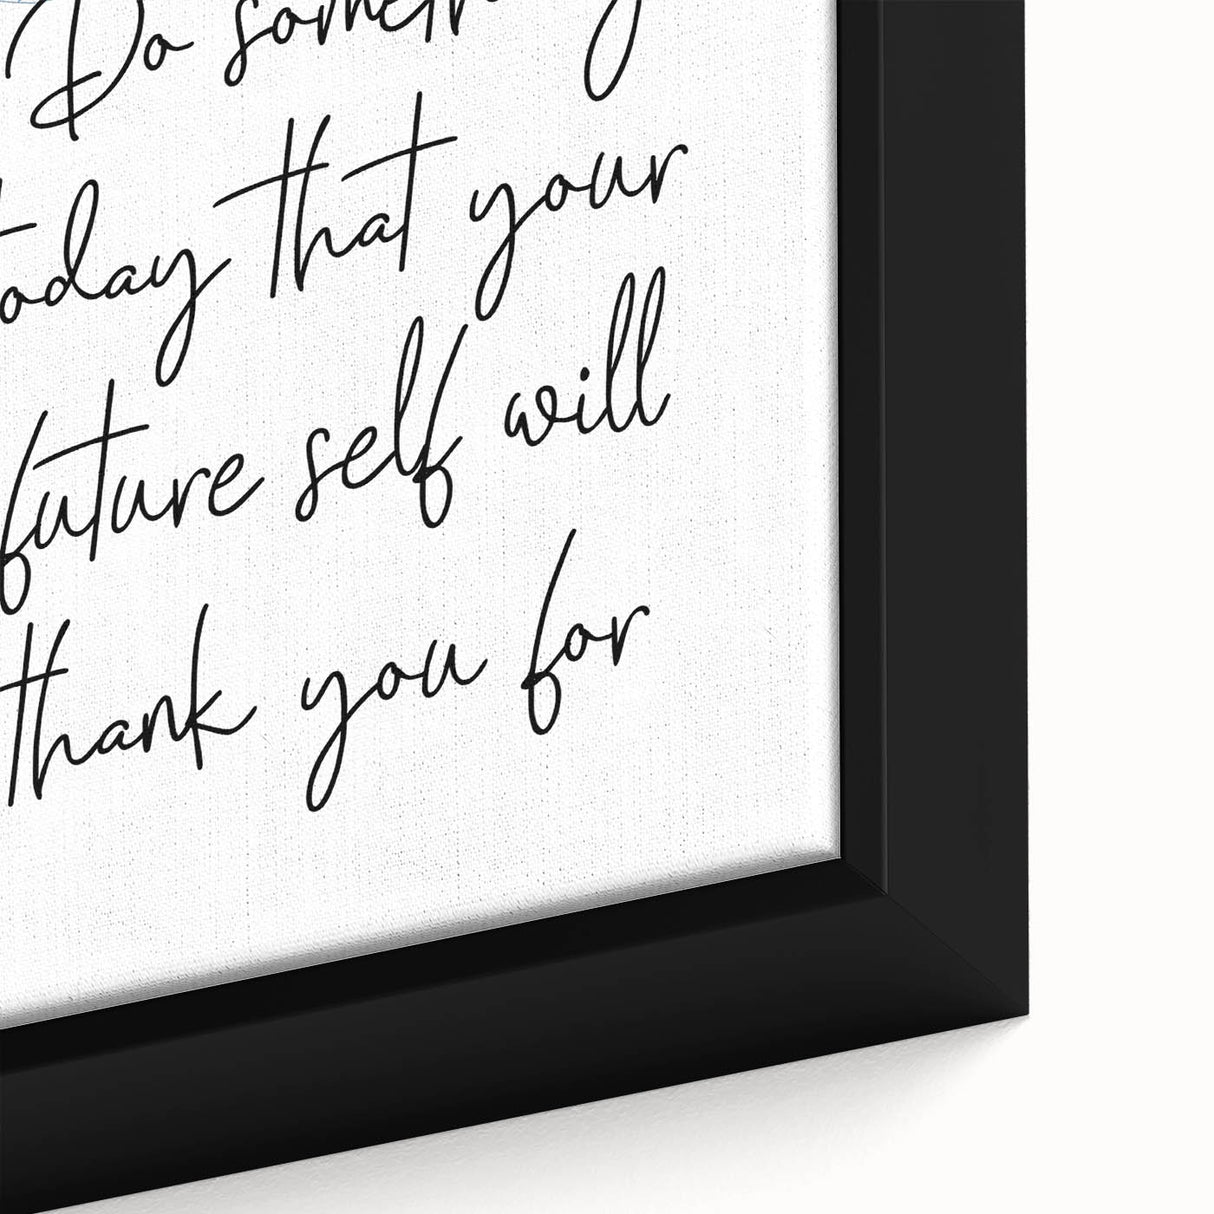 Do something
today that your
future self will
thank you for